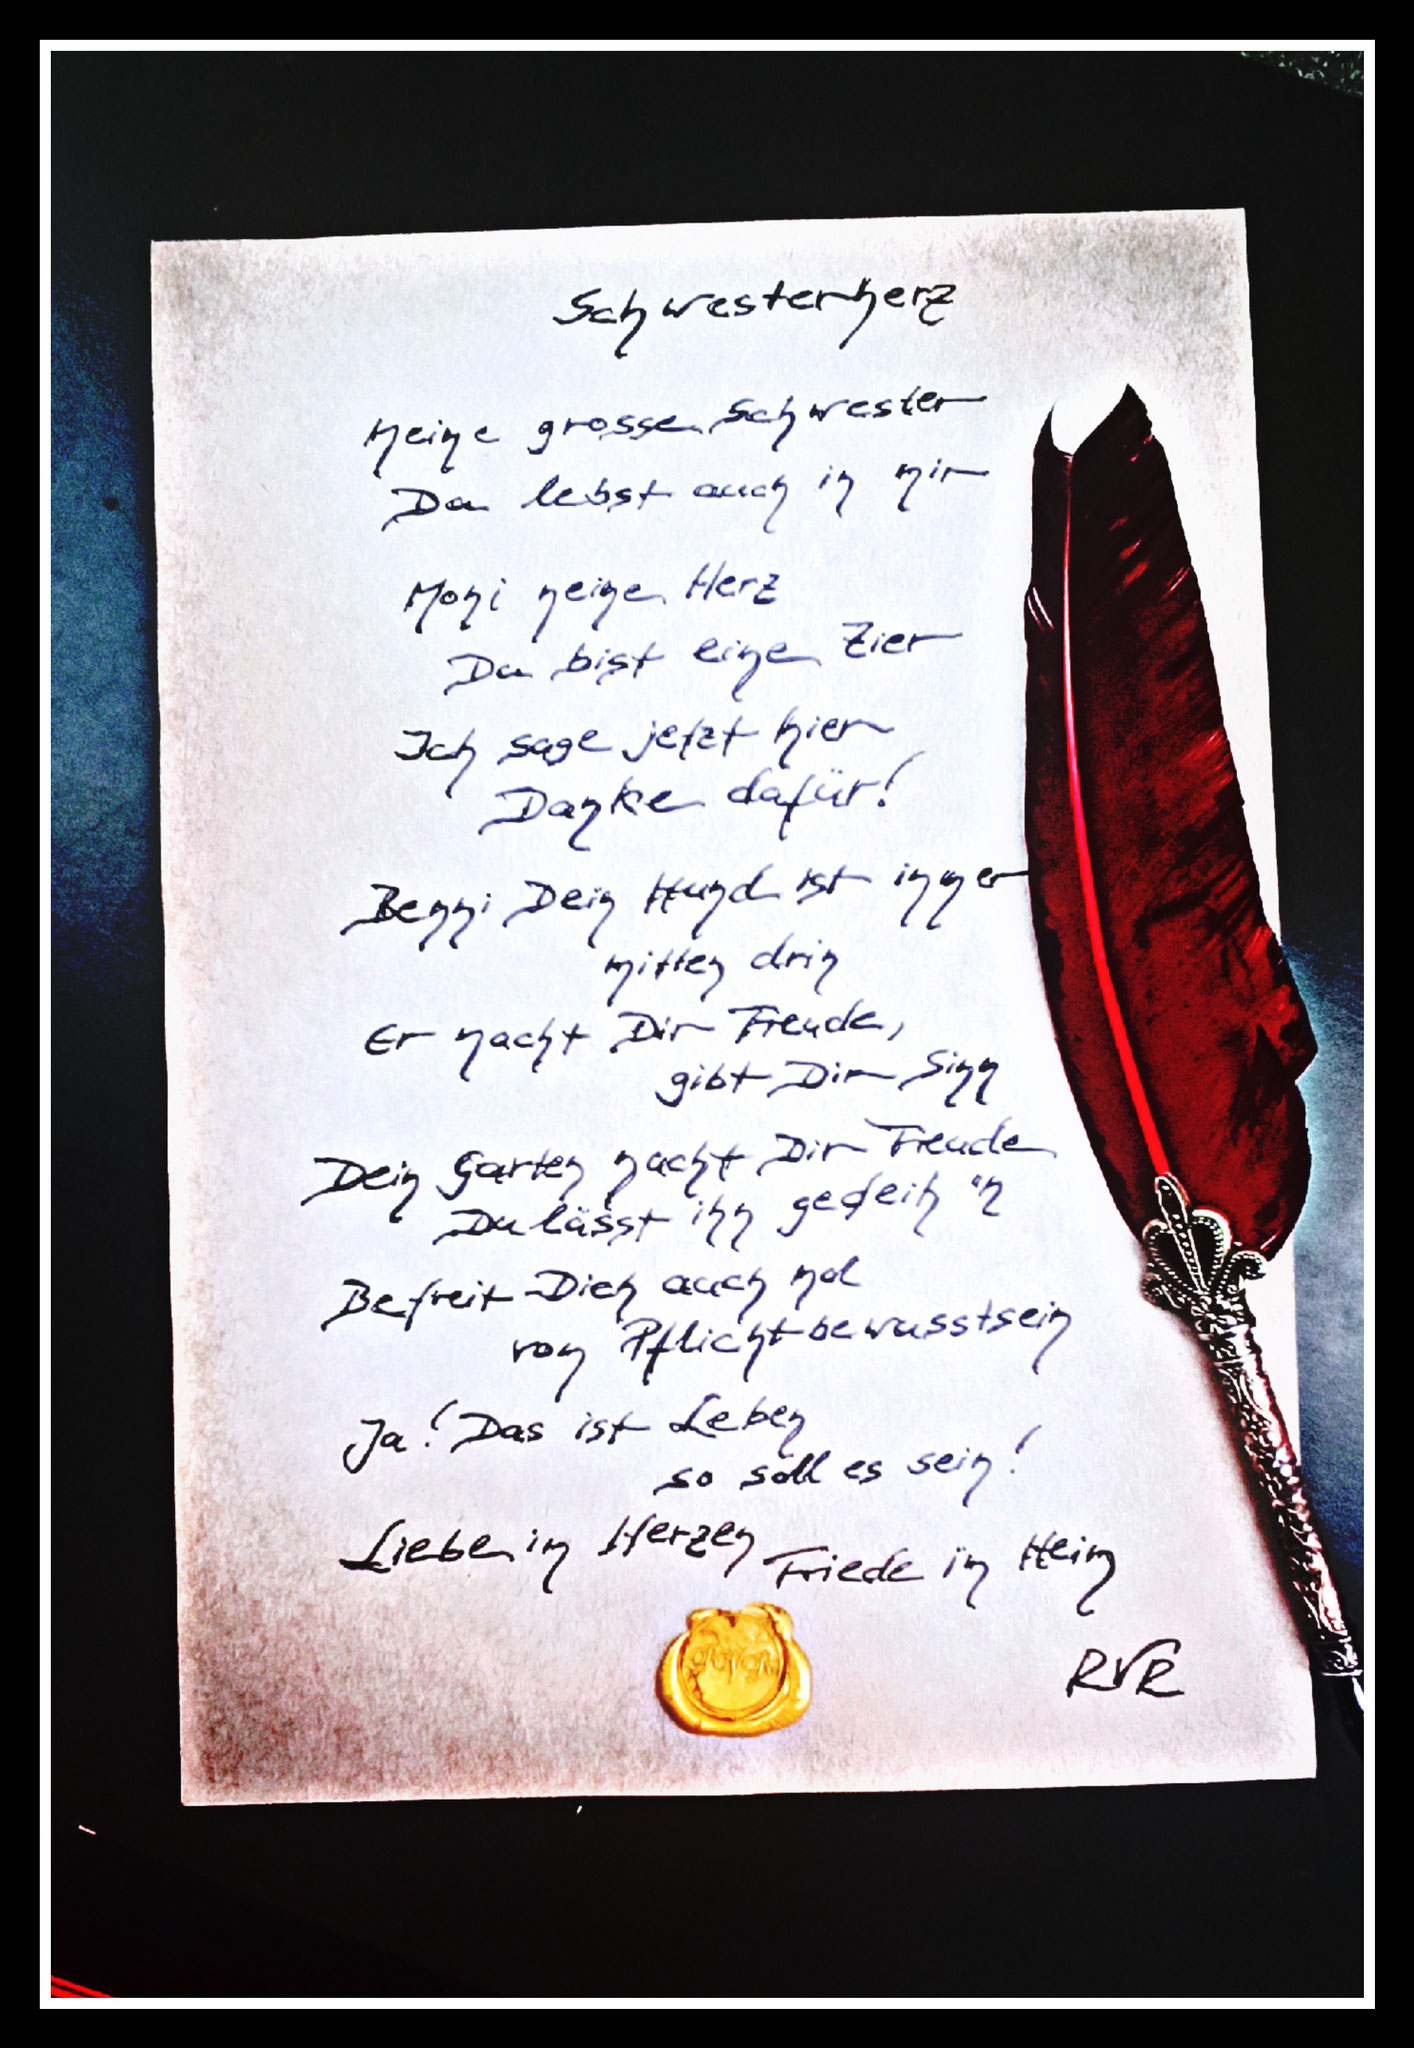 Schwesterherz
Meine grosse Schwester
Du lebst auch in mir
Moni meine Herz
Du bist eine Zier
Ich sage jetzt hier
Danke dafür!
Benni Dein Hund ist immer
mitten drin
Er macht Dir Freude,
gibt Dir Sinn
Dein Garten macht Dir Freude
Du lässt ihn gedeih'n
Befreit Dich auch mal
von Pflichtbewusstsein
Ja! Das ist Leben
so soll es sein!
Liebe im Herzen Friede im Heim
RVR